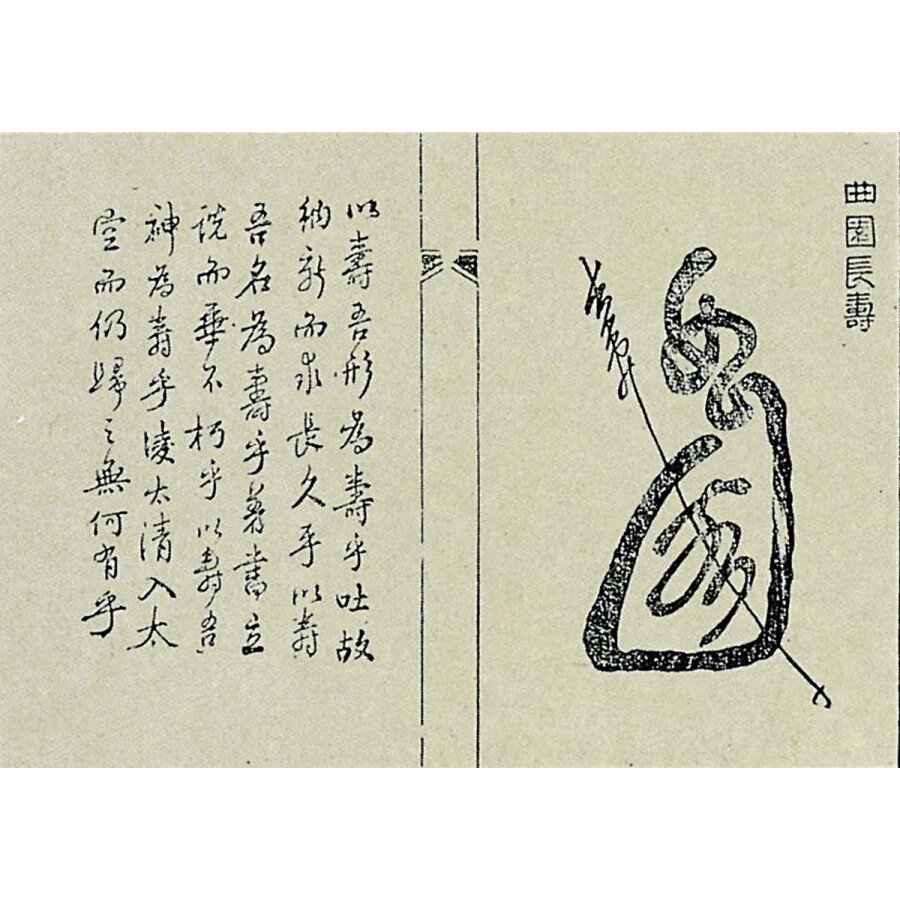 曲園長壽
曲園
長壽
以壽吾形為壽乎吐故
納新而求長久乎以壽
吾名為壽乎著書立
說而垂不朽乎以壽吾
神為壽乎凌太清入太
空而仍歸之無何有乎